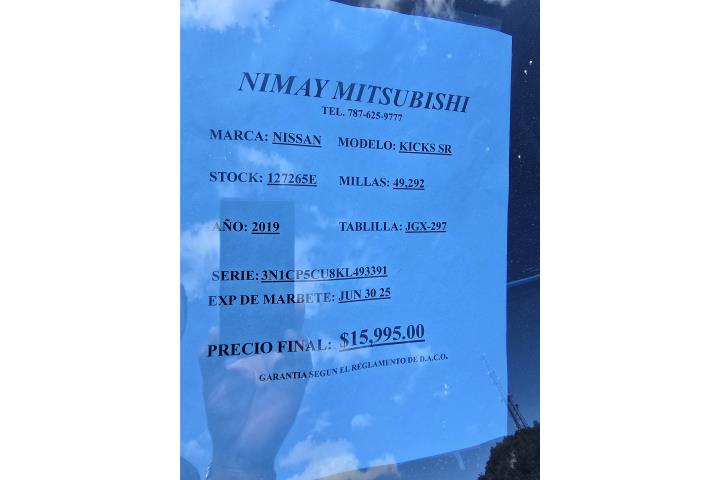 NIMAY MITSUBISHI
TEL. 787-625-9777
MARCA: NISSAN MODELO: KICKS SR
STOCK: 127265E MILLAS: 49,292
AÑO: 2019 TABLILLA: JGX-297
SERIE: 3N1CP5CU8KL493391
EXP DE MARBETE: JUN 30 25
PRECIO FINAL: $15,995.00
GARANTIA SEGUN EL REGLAMENTO DE D.A.C.O.